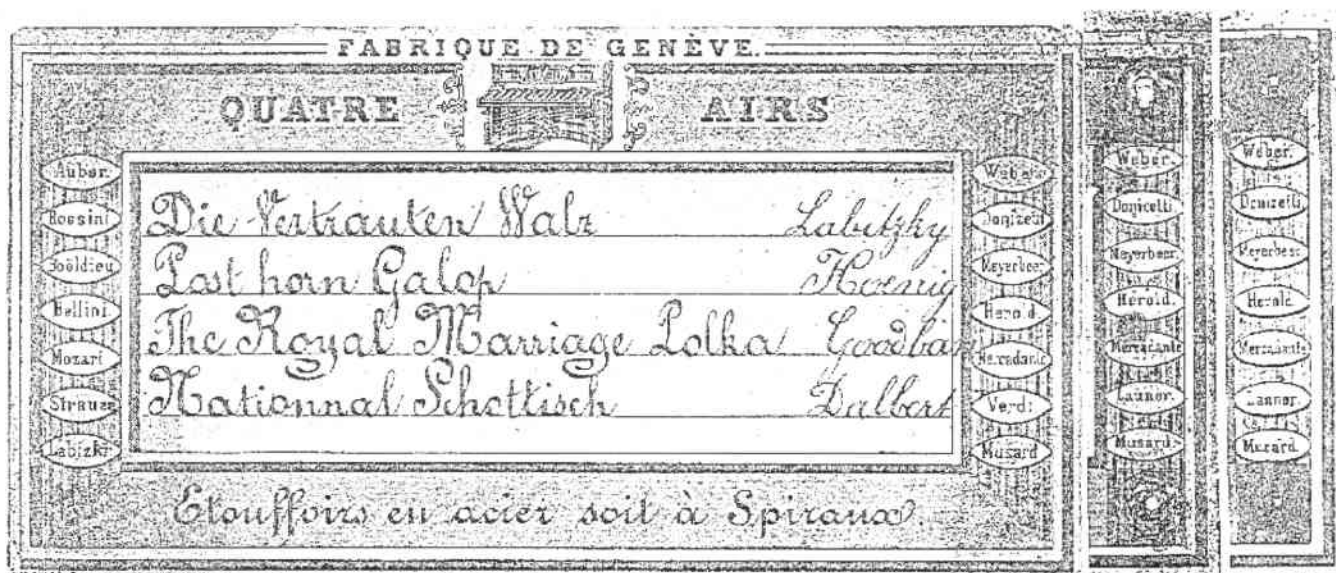 FABRIQUE DE GENÈVE.
QUATRE AIRS
Auber.
Rossini
Boëldieu
Bellini
Mozart
Strauss
Labizki
Die Vertrauten Walz Labitzky
Post horn Galop Hoenig
The Royal Marriage Polka Goodban
Nationnal Schottisch Dalbert
Etouffoirs en acier soit à Spiraux.
Weber.
Donizetti
Meyerbeer
Herold.
Mercadante
Verdi
Musard
Weber.
Donicetti
Meyerbeer.
Hérold.
Mercadante
Launer.
Musard.
Weber.
Donizetti.
Meyerbeer
Herold
Mercadante
Lanner.
Musard